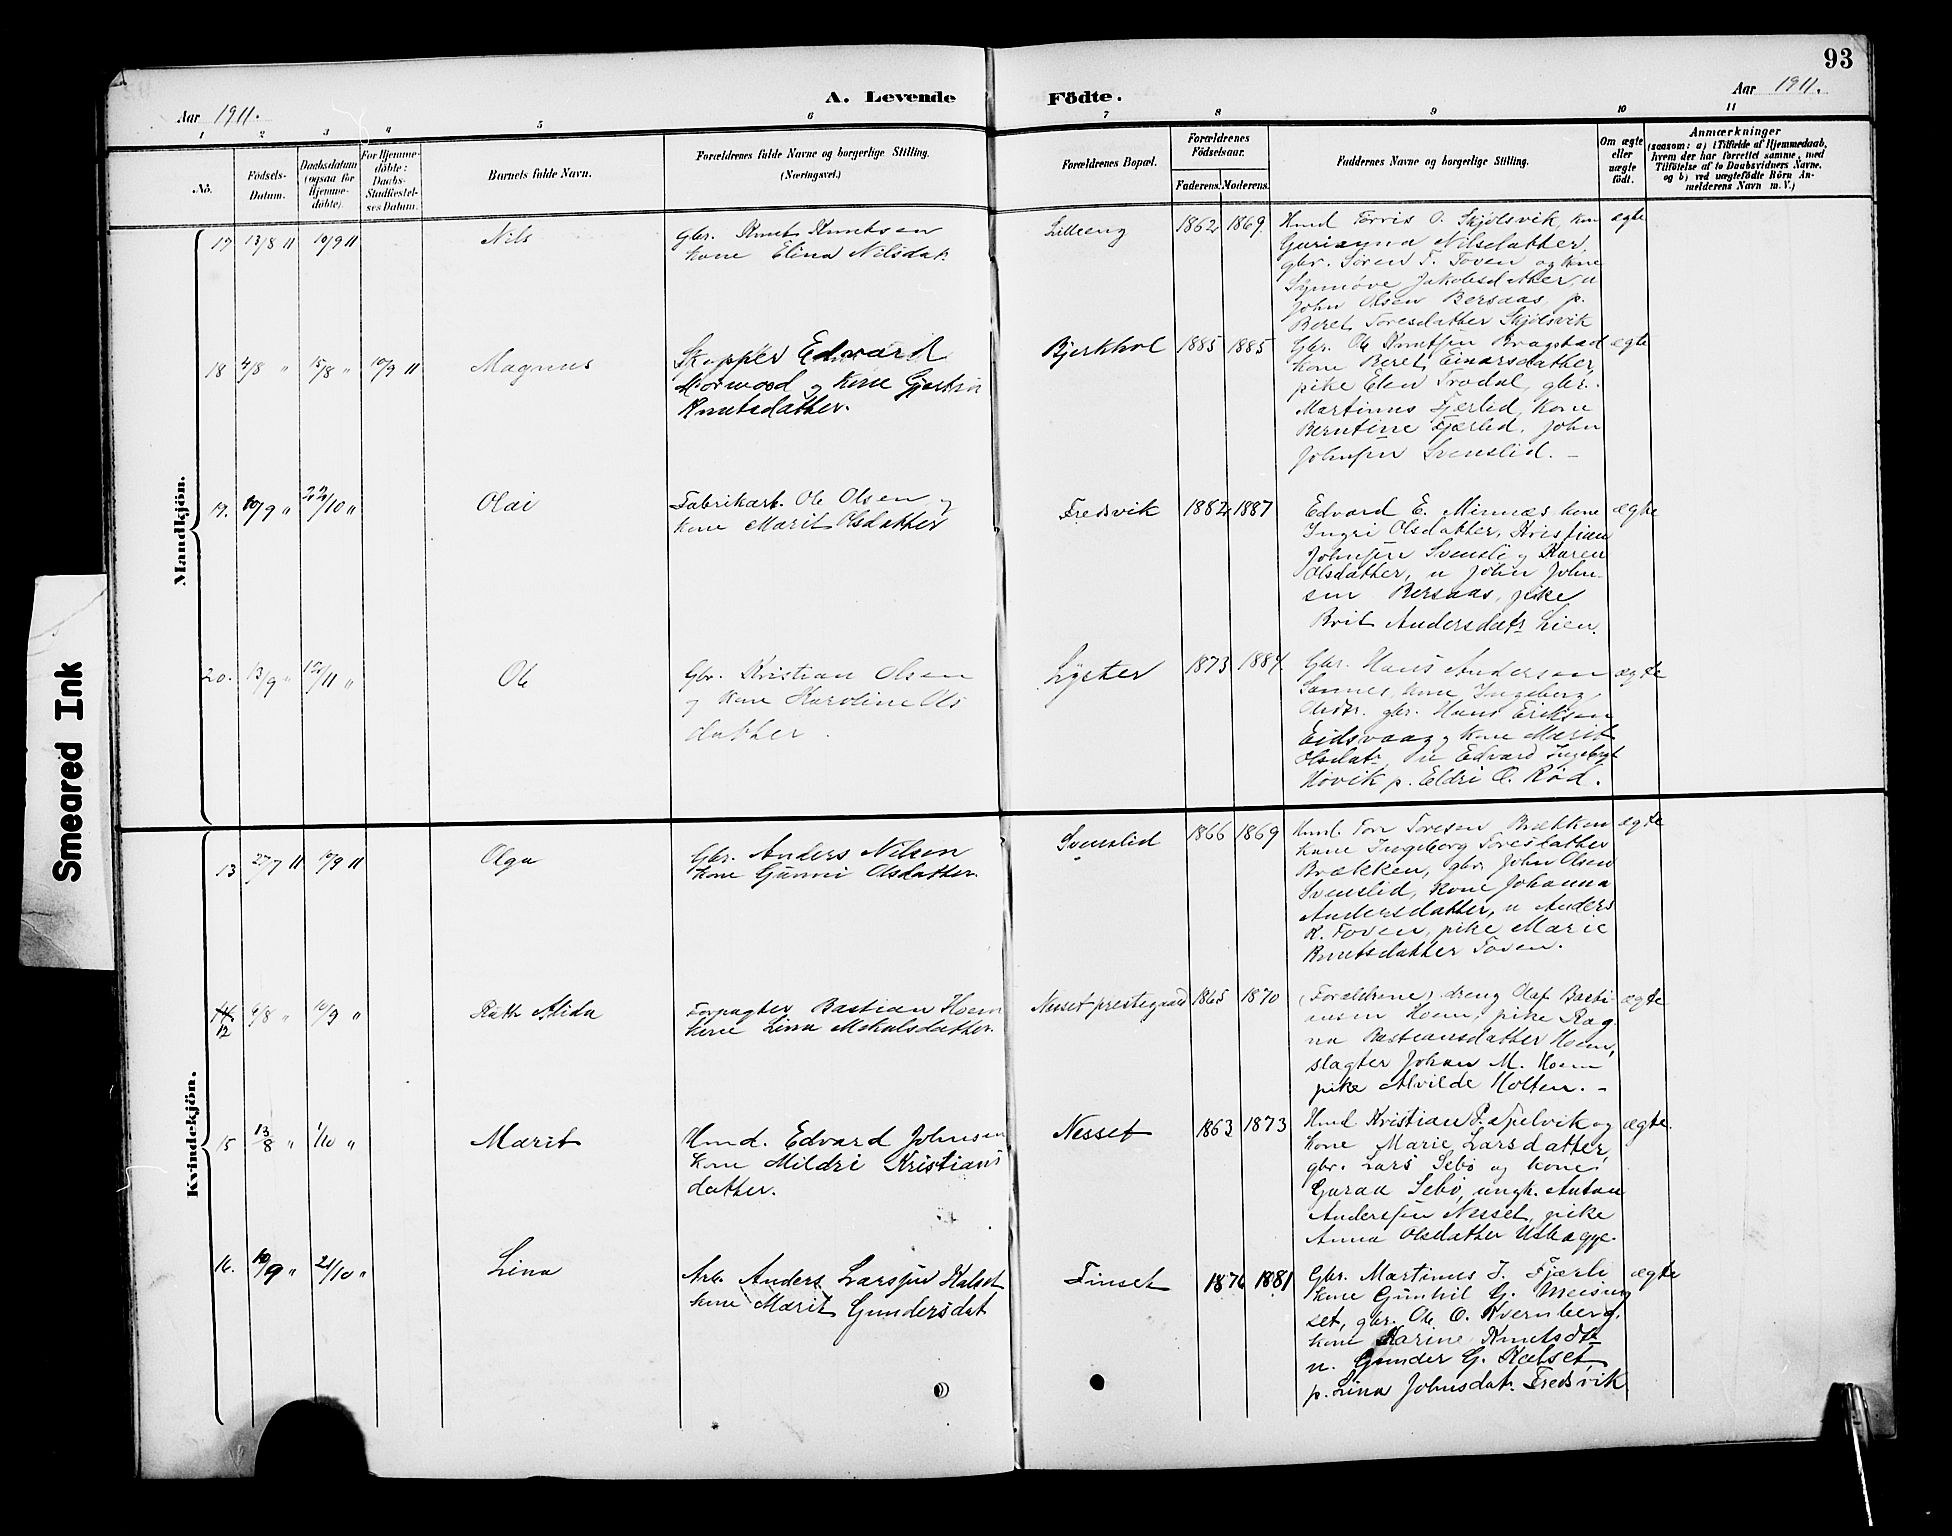 93
A. Levende Födte.
Aar 1911.
Aar 1911.
1 2 3 4 5 6 7 8 9 10 11
No.
Födsels-
Datum.
Daabsdatum
(ogsaa for
Hjemme-
döbte).
For Hjemme-
döbte:
Daabs-
Stadfæstel-
ses Datum.
Barnets fulde Navn.
Forældrenes fulde Navne og borgerlige Stilling.
(Næringsvei.)
Forældrenes Bopæl.
Forældrenes
Födselsaar.
Faderens. Moderens.
Faddernes Navne og borgerlige Stilling.
Om ægte
eller
uægte
født.
Anmærkninger
(saasom: a) i Tilfælde af Hjemmedaab,
hvem der har forrettet samme, med
Tilföielse af to Daabsvidners Navne,
og b) ved uægtefödte Börn An-
melderens Navn m. V.)
Mandkjön.
17 13/8 11 10/9 11
Nils
Gbr. Knut Knutsen
kone Elina Nilsdat.
Lilleeng
1862 1869.
Hmd Torris O. Skjølsvik, kon
Gurianna Nilsdatter,
gbr. Søren T. Toven og kone
Synnøve Jakobsdatter, u
John Olsen Bersaas, p.
Beret Toresdatter Skjølsvik
ægte
18 4/8 " 15/8 " 10/9 11
Magnus
Skipper Edvard
Morwood og kone Gjertine
Knutsdatter.
Bjerkhol
1885 1885
Gbr. Ole Knutsen Bragstad
kone Beret Einarsdatter,
pike Elen Trodal, gbr.
Martinus Fjærlid, kone
Berntine Fjærlid, John
Johnsen Svenslid. –
ægte
19. 10/9 " 22/10 "
Olai
Fabrikarb. Ole Olsen og
kone Marit Olsdatter
Fredsvik
1882 1887
Edvard E. Minnæs kone
Ingri Olsdatter, Kristian
Johnsen Svensli og Karen
Olsdatter, u John John-
sen Bersaas, pike
Brit Andersdatr Lien.
ægte
20. 13/9 " 12/11 "
Ole
Gbr. Kristian Olsen
og kone Karoline Ols
datter.
1873 1884.
Gbr. Hans Andersen
Sannes, kone Ingeberg
gbr. Hans Eriksen
Eidsvaag og kone Marit
Olsdatr Edvard Ingebrgt
Høvik p. Eldri O. Rød.
ægte
Kvindekjön.
13 27/7 11 10/9 11
Olga
Gbr. Anders Nilsen
kone Gunni Olsdatter.
Svenslid
1866 1869
Hmd. Tore Toresen Brækken
kone Ingeborg Toresdatter
Brækken, gbr. John Olsen
Svenslid, kone Johanna
Andersdatter, u Anders
K. Toven, pike Marie
Knutsdatter Toven.
ægte
14. 6/8 " 10/9 "
12
Ruth Alida
Forpagter Bastian Hoem
kone Lina Mekalsdatter.
Nesset prestegaard
1865 1870
(Forældrene) dreng Olaf Basti-
ansen Hoem, pike Rag-
na Bastiansdatter Hoem,
slagter Johan M. Hoem
pike Alvilde Holten. –
ægte
15 13/8 " 1/10 "
Marit
Hmd. Edvard Johnsen
kone Mildri Kristians
datter.
Nesset
1863 1873
Hmd Kristian P. Spelvik og
kone Marie Larsdatter,
gbr. Lars Sebø og kone
Guraa Sebø, ungk. Anton
Andersen Nesset, pike
Anna Olsdatter Ushagge.
ægte.
16. 10/9 " 21/10 "
Lina
Arb. Anders Larsen Kalset
kone Marit Gundersdat
Finset
1876 1881
Gbr. Martinus J. Fjærli
kone Gunhil G. Meising
set, gbr. Ole O. Kvernberg,
kone Karine Knutsdtr
u. Gunder G. Kalset,
p. Lina Johnsdat. Fredsvik
ægte
Smeared Ink